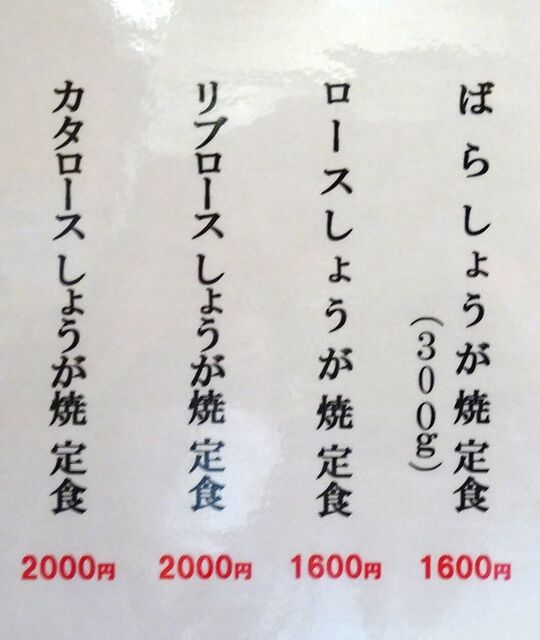 ばらしょうが焼定食
（300g）
1600円
ロースしょうが焼定食
1600円
リブロースしょうが焼定食
2000円
カタロースしょうが焼定食
2000円